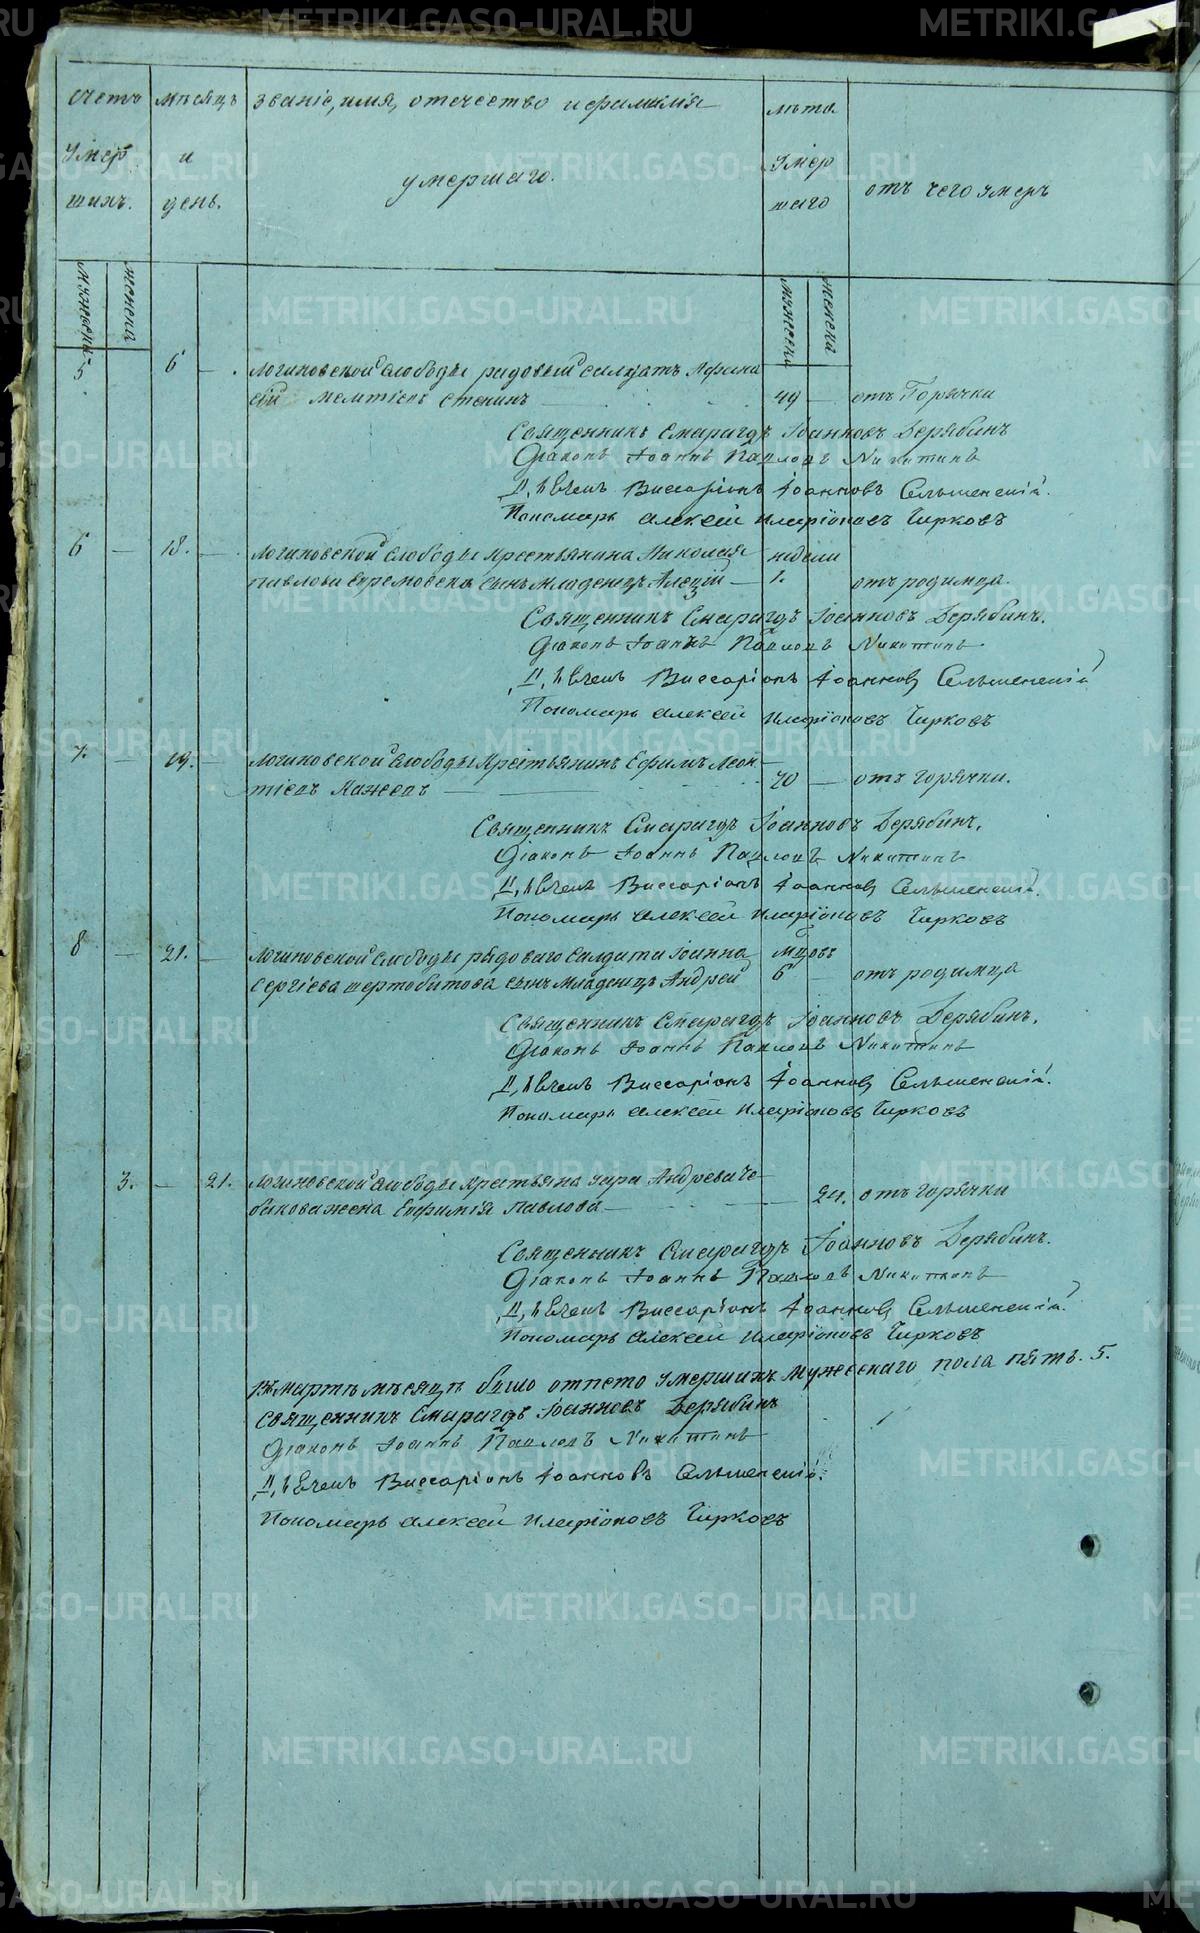 счетъ мѣсяцъ званіе, имя, отечество и фамилія лѣта
умер и умершаго. умер отъ чего умеръ
шихъ. день. шаго
мужеска женска мужеска женска
5 6 Логиновской слободы рядовый салдатъ Афана
сій Стенинъ 49 отъ Горячки
Священникъ Смарагдъ Іоанновъ Дерябинъ
Діаконъ Іоаннъ Павловъ Никитинъ
Виссаріонъ Іоанновъ
Пономарь Алексей Иларіоновъ Чирковъ
6 18. Логиновской слободы крестьянина Николая недели
Павлова сынъ младенецъ Алексій 1. отъ родимца.
Священникъ Смарагдъ Іоанновъ Дерябинъ.
Діаконъ Іоаннъ Павловъ Никитинъ
Виссаріонъ Іоанновъ
Пономарь Алексей Иларіоновъ Чирковъ
7. 19. Логиновской слободы крестьянинъ Ефимъ Леон
тіевъ 70 отъ горячки.
Священникъ Смарагдъ Іоанновъ Дерябинъ.
Діаконъ Іоаннъ Павловъ Никитинъ
Виссаріонъ Іоанновъ
Пономарь Алексей Иларіоновъ Чирковъ
8 21. Логиновской слободы рядоваго салдата Іоанна мцовъ
Сергіева сынъ младенецъ Андрей 6 отъ родимца
Священникъ Смарагдъ Іоанновъ Дерябинъ.
Діаконъ Іоаннъ Павловъ Никитинъ
Виссаріонъ Іоанновъ
Пономарь Алексей Иларіоновъ Чирковъ
3. 21. Логиновской слободы Андрева Че
бакова жена Евфимія Павлова 24. отъ горячки
Священникъ Смарагдъ Іоанновъ Дерябинъ.
Діаконъ Іоаннъ Павловъ Никитинъ
Виссаріонъ Іоанновъ
Пономарь Алексей Иларіоновъ Чирковъ
мартѣ мѣсяцѣ было отпето умершихъ мужескаго пола пять. 5.
Священникъ Смарагдъ Іоанновъ Дерябинъ
Діаконъ Іоаннъ Павловъ Никитинъ
Виссаріонъ Іоанновъ
Пономарь Алексей Иларіоновъ Чирковъ
METRIKI.GASO-URAL.RU